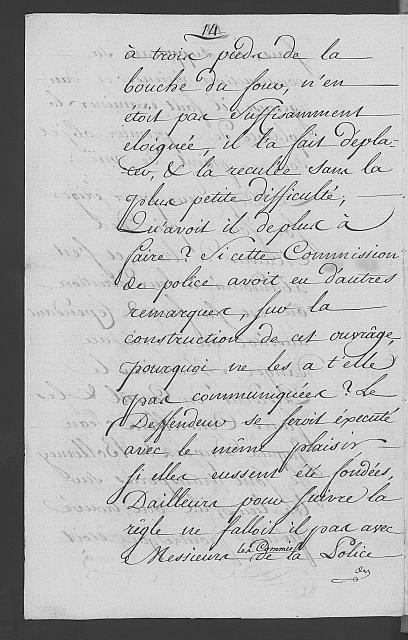 14
à trois pieds de la
bouche du four, n'en
étoit pas suffisamment
eloignée, il l'a fait dépla-
cer, & la reculée sans la
plus petite difficulté,
Qu'avoit il de plus à
faire ? Si cette Commission
de police avoit eu d'autres
remarques, sur la
construction de cet ouvrâge,
pourquoi ne les a t'elle
pas communiquées ? Le
Deffendeur se seroit éxecuté
avec le même plaisir
si elles eussent été fondées,
D'ailleurs pour suivre la
règle ne falloit il pas avec
les Commis
Messieurs de la Police